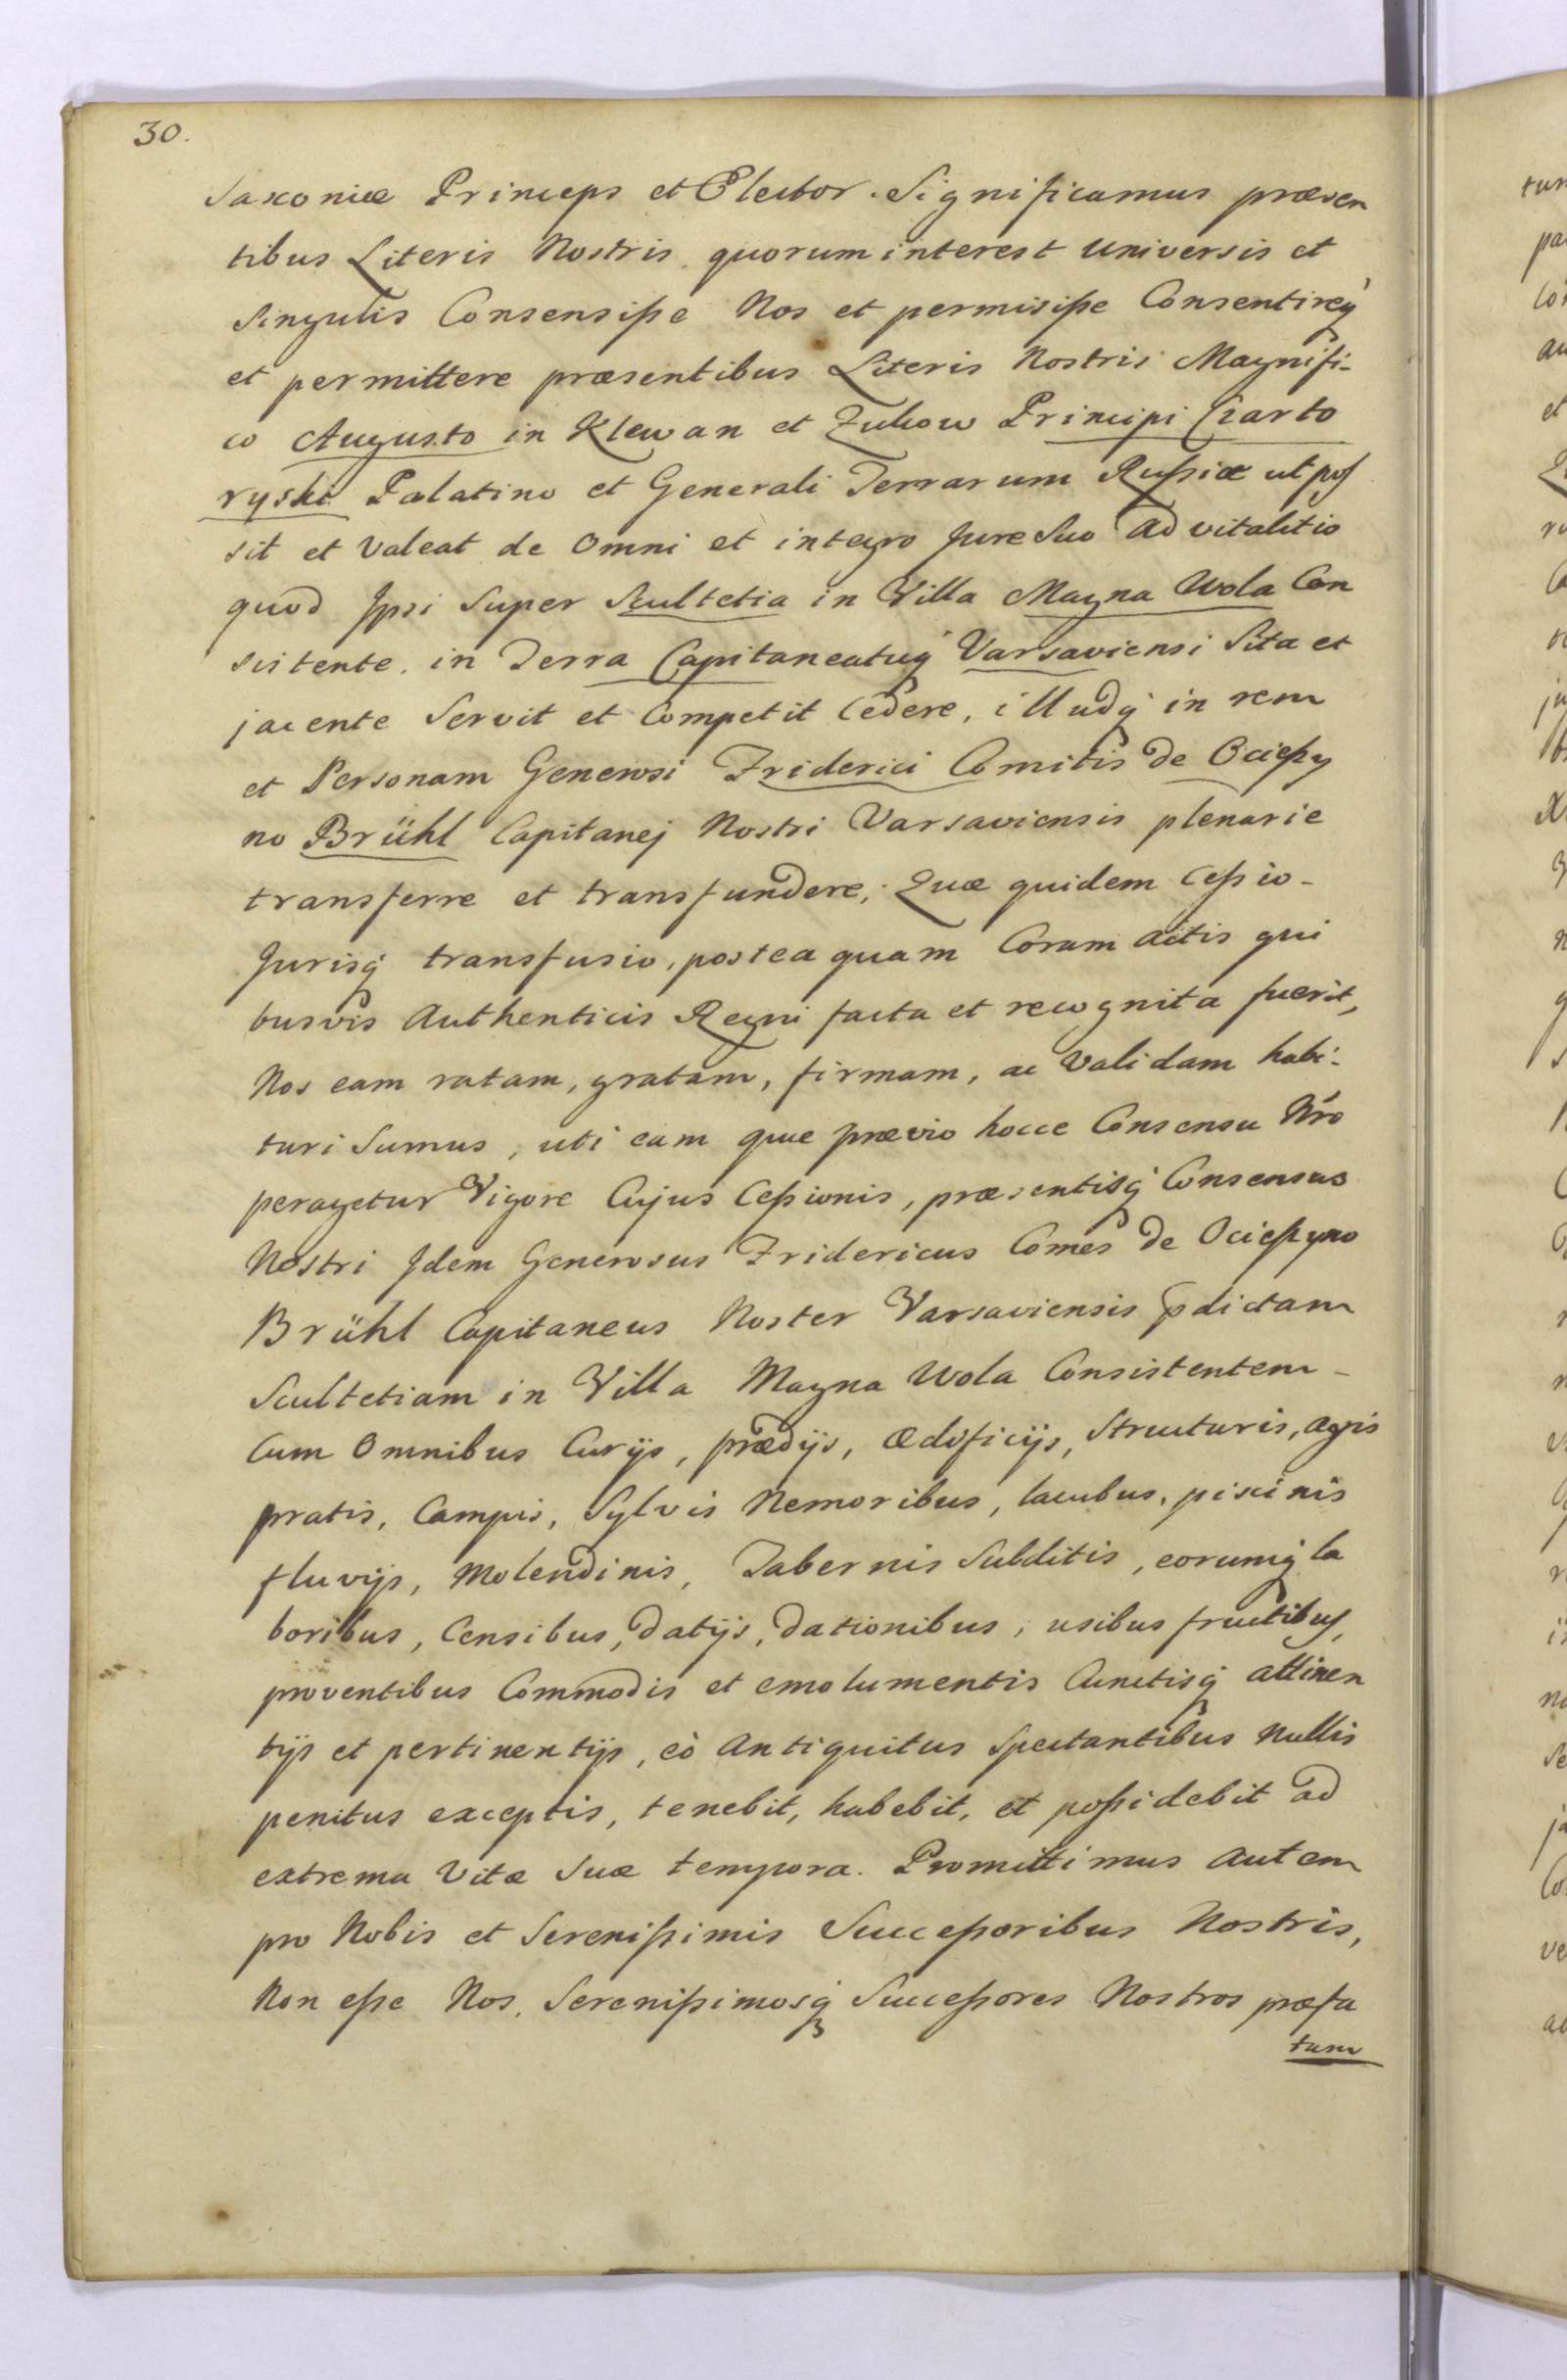 30.
Saxoniæ Princeps et Elector. Significamus præsen
tibus Literis Nostris quorum interest universis et
singulis Consensiße Nos et permisiße Consentireq́
et permittere præsentibus Literis Nostris Magnifi-
co Augusto in Klewan et Zukow Principi Czarto
ryski Palatino et Generali Terrarum Rußiæ ut pos
sit et valeat de Omni et integro Jure Suo advitalitio
quod Ipsi Super Scultetia in Villa Magna Wola Con
sistente in Terra Capitaneatuq́ Varsaviensi Sita et
jacente Servit et Competit Cedere, illudq́ in rem
et Personam Generosi Friderici Comitis de Ocießy
no Brühl Capitanej Nostri Varsaviensis plenarie
transferre et transfundere; Quæ quidem Ceßio-
Jurisq́ transfusio, postea quam Coram actis qui
busvis Authenticis Regni facta et recognita fuerit,
Nos eam ratam, gratam, firmam, ac validam habi-
turi Sumus, uti eam quæ prævio hocce Consensu Nr̃o
peragetur Vigore Cujus Ceßionis, præsentisq́ Consensus
Nostri Idem Generosus Fridericus Comes de Ocießyno
Brühl Capitaneus Noster Varsaviensis p̃dictam
Scultetiam in Villa Magna Wola Consistentem-
Cum Omnibus Curijs, prædijs, Ædificijs, Structuris, agris
pratis, Campis, Sylvis Nemoribus, lacubus, piscinis
fluvijs, Molendinis, Tabernis Subditis, eorumq́ la
boribus, Censibus, datijs, dationibus, usibus fructibus,
proventibus Commodis et emolumentis Cunctisq́ attinen
tijs et pertinentijs, eò Antiquitus Spectantibus Nullis
penitus exceptis, tenebit, habebit, et poßidebit ad
extrema Vitæ Suæ tempora. Promittimus autem
pro Nobis et Sereníßimis Succeßoribus Nostris,
Non eße Nos, Sereníßimosq́ Succeßores Nostros præfa
tum